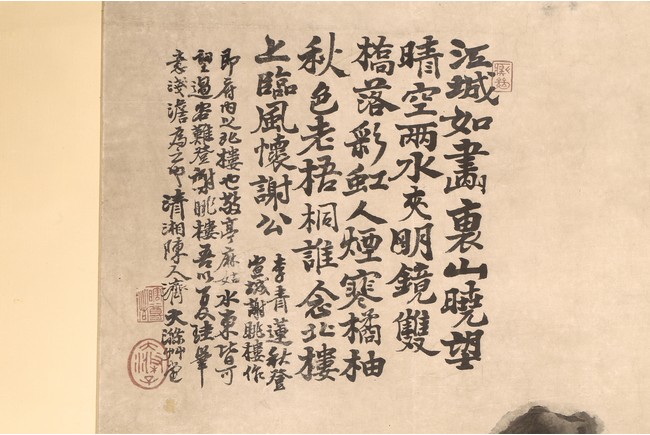 江城如畫裏山曉望
晴空兩水夾明鏡雙
橋落彩虹人煙寒橘柚
秋色老梧桐誰念北樓
上臨風懷謝公
李青蓮秋登
宣城謝眺樓作
即府內之北樓也敬亭麻姑水東皆可
望過客難登謝眺樓吾以夏珪筆
意淺澹為之 清湘陳人濟大滌草堂